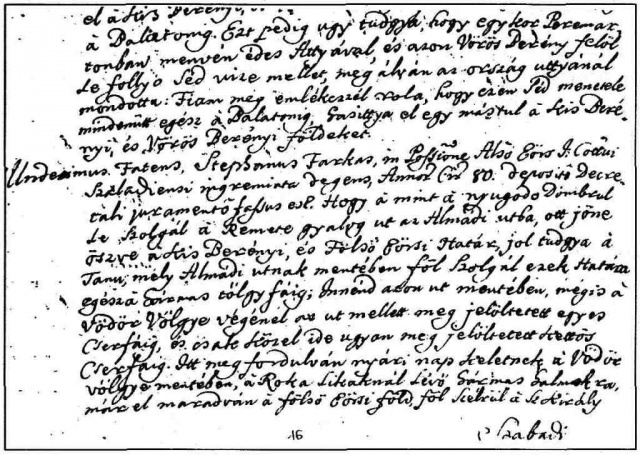 el á Kis Berényi
á Balatonig. Ezt pedig ugy tudgya, hogy egykor Peremár,
tonban menvén édes Attyával, és azon Vörös Berény felöl
le follyo Séd vize mellet, meg álván az ország uttyánál
mondotta: Fiam meg emlékezzél rola, hogy ezen Séd menetele
mindenütt egész á Balatonig, szasittya el egy mástul á Kis Beré-
nyi, és Vörös Berényi földeket.
Undecimus Fatens, Stephanus Farkas, in Possessione Alsó Eörs I. Cottui
Szaladiensi ingremiata degens, Annor Cir 80. deposito Decre-
tali juramento fassus est. Hogy á mint á nyugodo Dombrul
le szolgál á Remete gyalog ut az Almádi utba, ott jöne
öszve á Kis Berényi, és Fölsö Eörsi Határ, jol tudgya á
Tanu, mely Almádi utnak mentében föl szolgál ezek Határa
egész á Sármas tölgyfáig; Innénd azon ut mentében, megis á
Vödör Völgye végénel az ut mellett meg jelöltetett egyes
Cserfáig, és csak közel ide ugyan meg jelöltetett kettös
Cserfáig. Itt meg fordulván nyári nap keletnek á Vödör
völgye mentében, á Roka likaknál lévö Sármas halmokra,
már el maradván á fölsö Eörsi föld, föl szélrül á Sz: Király
Szabadi
16